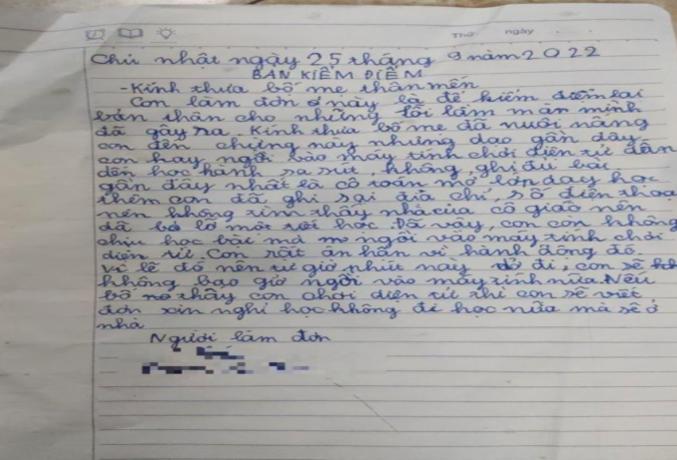 Thứ ngày
Chủ nhật ngày 25 tháng 9 năm 2022
BẢN KIỂM ĐIỂM
- Kính thưa bố mẹ thân mến
Con làm đơn này là để kiểm điểm lại
bản thân cho những lỗi lầm mà mình
đã gây ra. Kính thưa bố mẹ đã nuôi nấng
con đến chừng này nhưng dạo gần đây
con hay ngồi vào máy tính chơi điện tử dẫn
đến học hành sa sút, không ghi đủ bài
gần đây nhất là cô toán mở lớp dạy học
thêm con đã ghi sai địa chỉ, số điện thoại
nên không tìm thấy nhà của cô giáo nên
đã bỏ lỡ một tiết học. Đã vậy, con còn không
chịu học bài mà ngồi vào máy tính chơi
điện tử. Con rất ân hận vì hành động đó
vì lẽ đó nên từ giờ phút này đi, con sẽ
không bao giờ ngồi vào máy tính nữa. Nếu
bố mẹ thấy con chơi điện tử thì con sẽ viết
đơn xin nghỉ học không đi học nữa mà sẽ ở
nhà
Người làm đơn